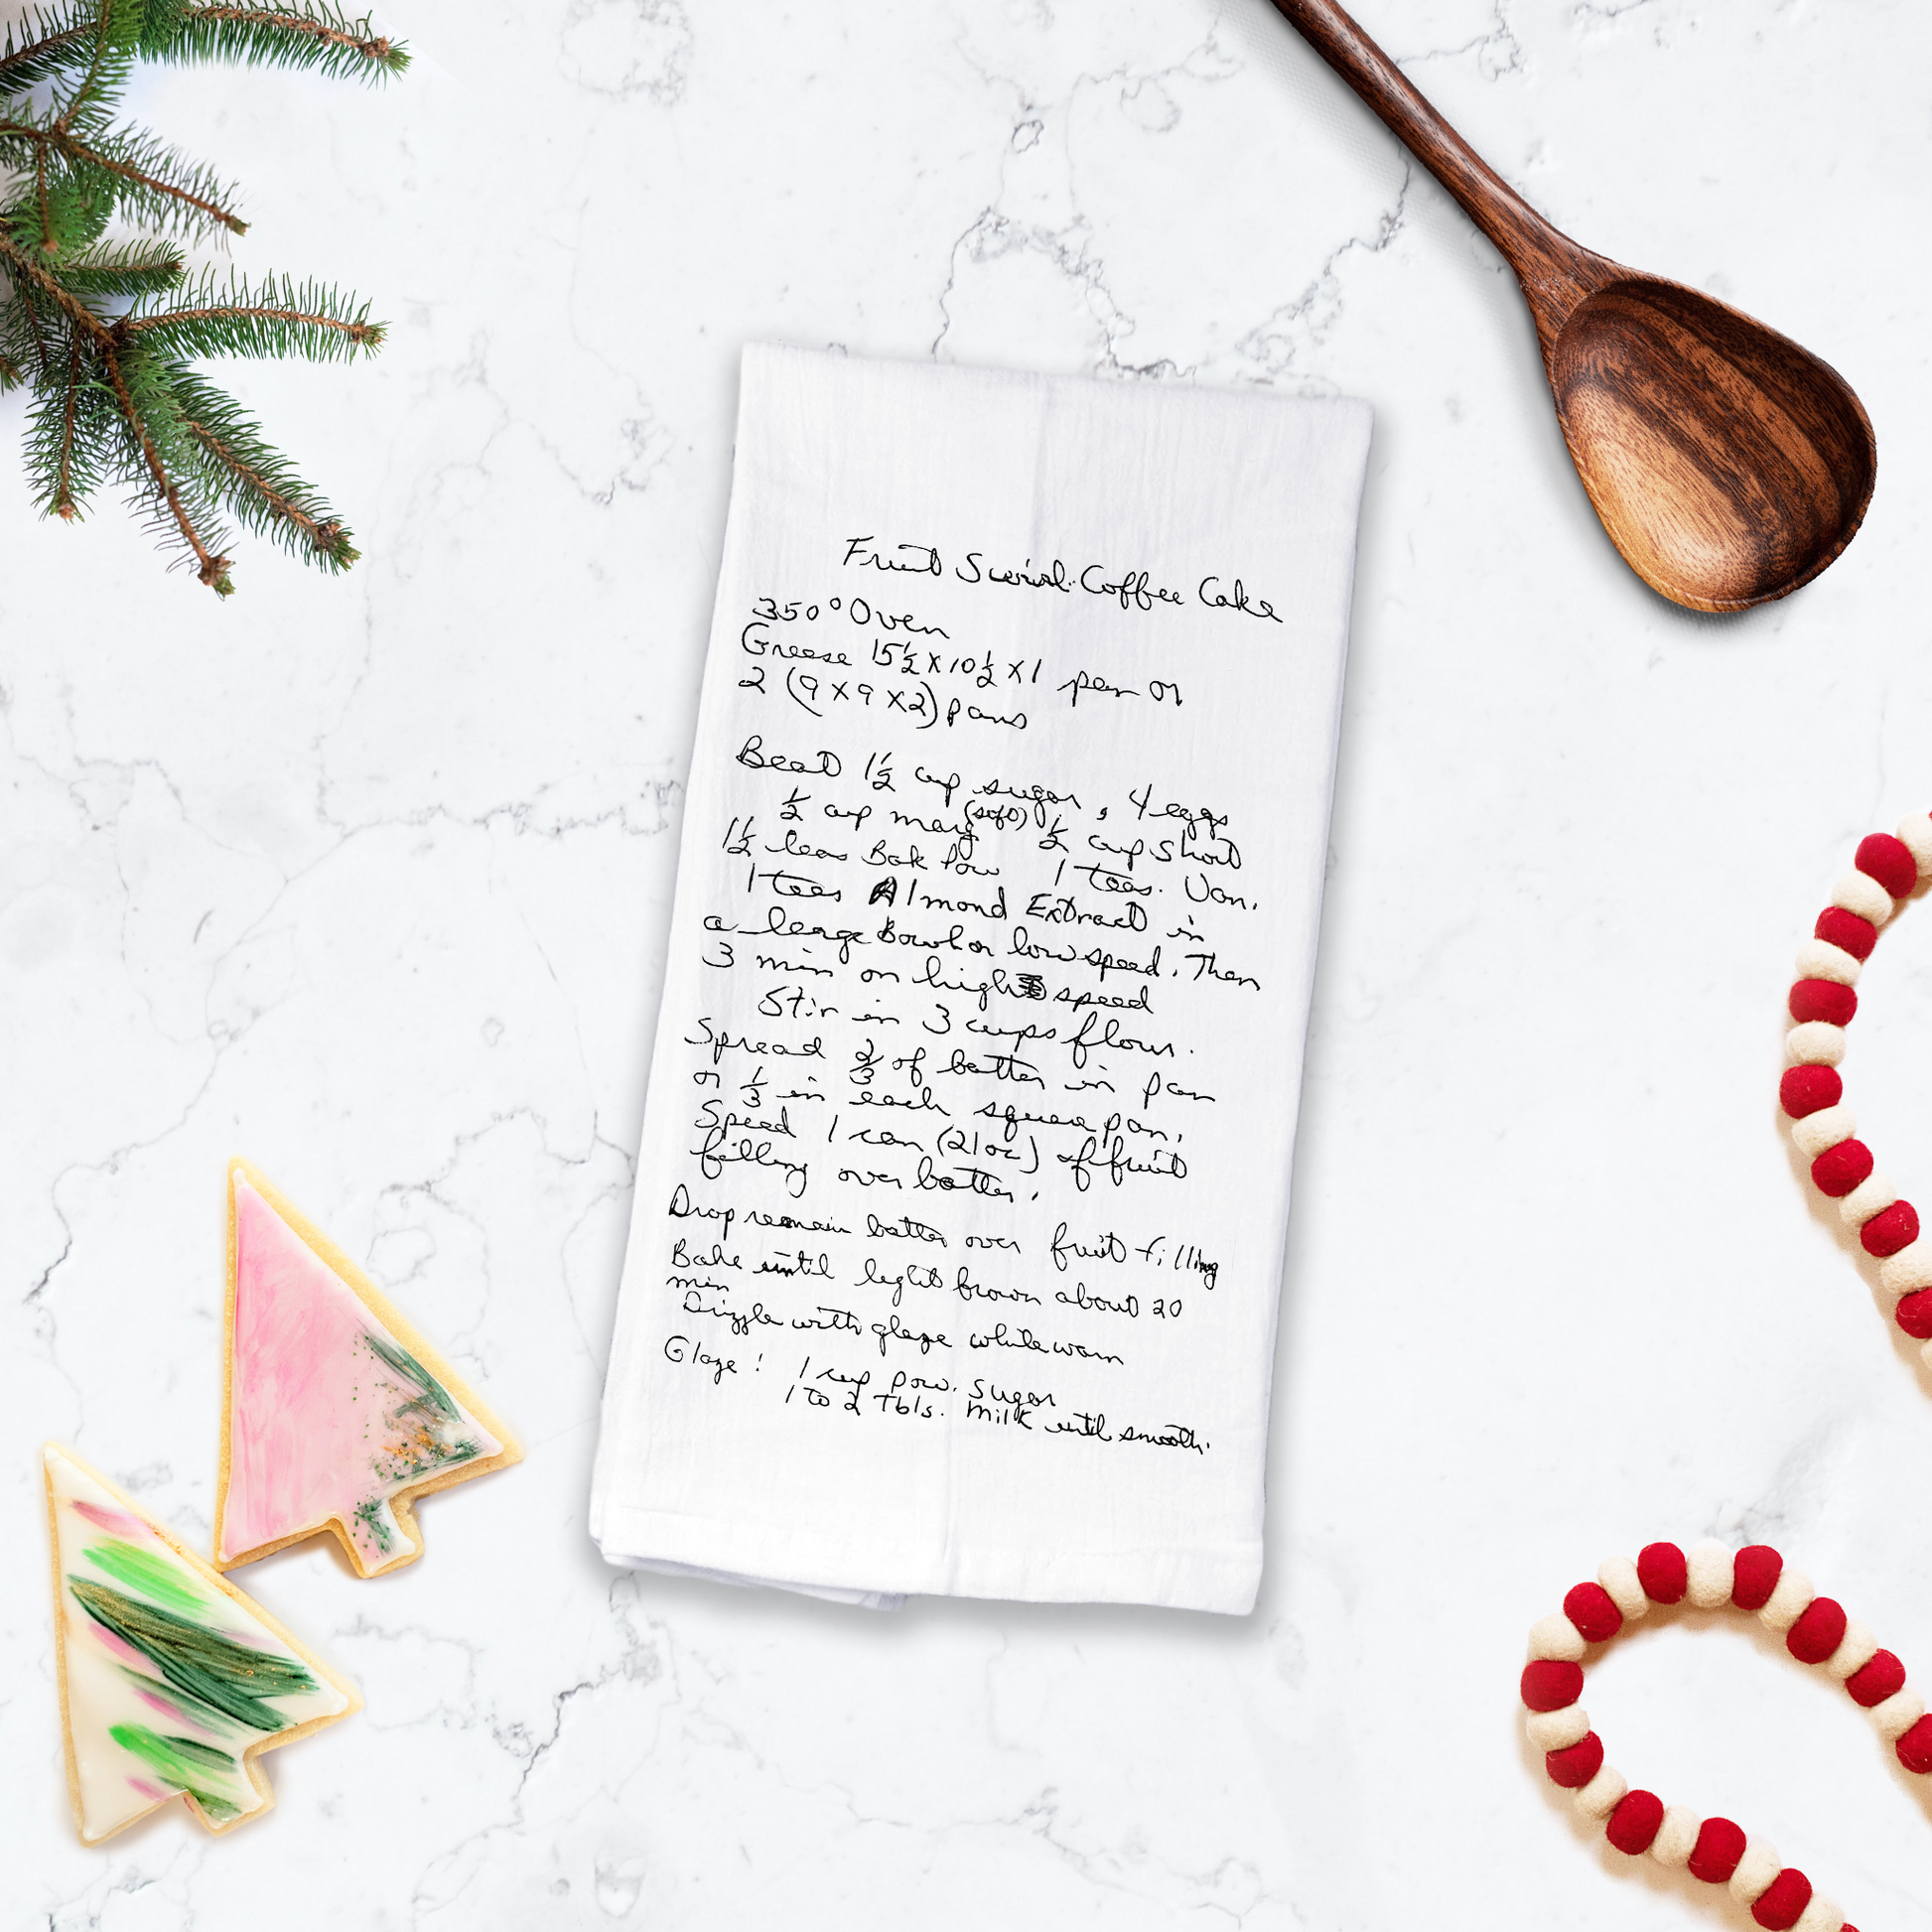 Fruit Swirl Coffee Cake
350° Oven
Grease 15½ X 10½ X 1 pan or
2 (9 X 9 X 2) pans
Beat 1½ cup sugar, 4 eggs
½ cup marg (soft) ½ cup short
1½ teas Bak Pow 1 teas. Van.
1 teas Almond Extract in
a large Bowl on low speed. Then
3 min on high speed
Stir in 3 cups flour.
Spread ⅔ of batter in pan
or ⅓ in each square pan.
Spead 1 can (21 oz) of fruit
filling over batter.
Drop remain batter over fruit filling
Bake until light brown about 20
min
Drizzle with glaze while warm
Glaze: 1 cup pow. sugar
1 to 2 Tbls. milk until smooth.